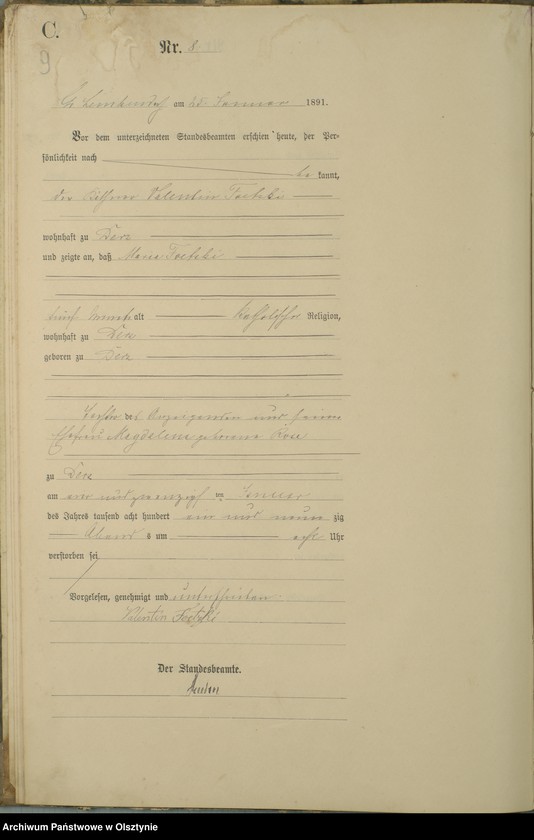 C.
9
Nr. 8.
am 25. Januar 1891.
Vor dem unterzeichneten Standesbeamten erschien heute, der Per-
sönlichkeit nach
be kannt,
der Valentin
wohnhaft zu Derz
und zeigte an, daß Maria
fünf Monate alt katholischer Religion,
wohnhaft zu Derz
geboren zu Derz
Tochter des Anzeigenden und seiner
Ehefrau Magdalena geborene Rose
zu Derz
am und zwanzigsten Januar
des Jahres tausend acht hundert ein und neun zig
Abends s um acht Uhr
verstorben sei
Vorgelesen, genehmigt und unterschrieben
Valentin
Der Standesbeamte.
Archiwum Państwowe w Olsztynie